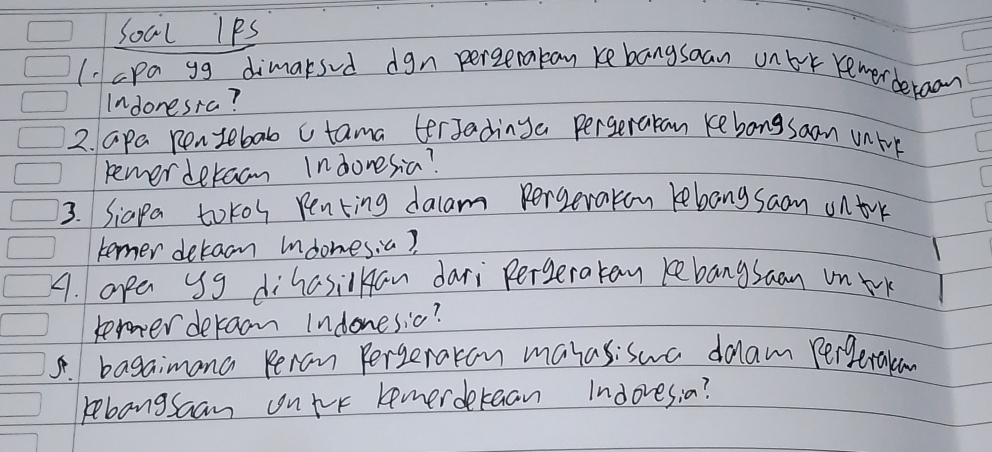 Soal IPS
1. apa yg dimaksud dgn pergerakan kebangsaan untuk kemerdekaan
Indonesia?
2. apa penyebab utama terjadinya pergerakan kebangsaan untuk
kemerdekaan Indonesia?
3. Siapa tokoh penting dalam pergerakan kebangsaan untuk
kemerdekaan indonesia?
4. apa yg dihasilkan dari pergerakan kebangsaan untuk
kemerdekaan Indonesia?
5. bagaimana peran pergerakan mahasiswa dalam pergerakan
kebangsaan untuk kemerdekaan Indonesia?